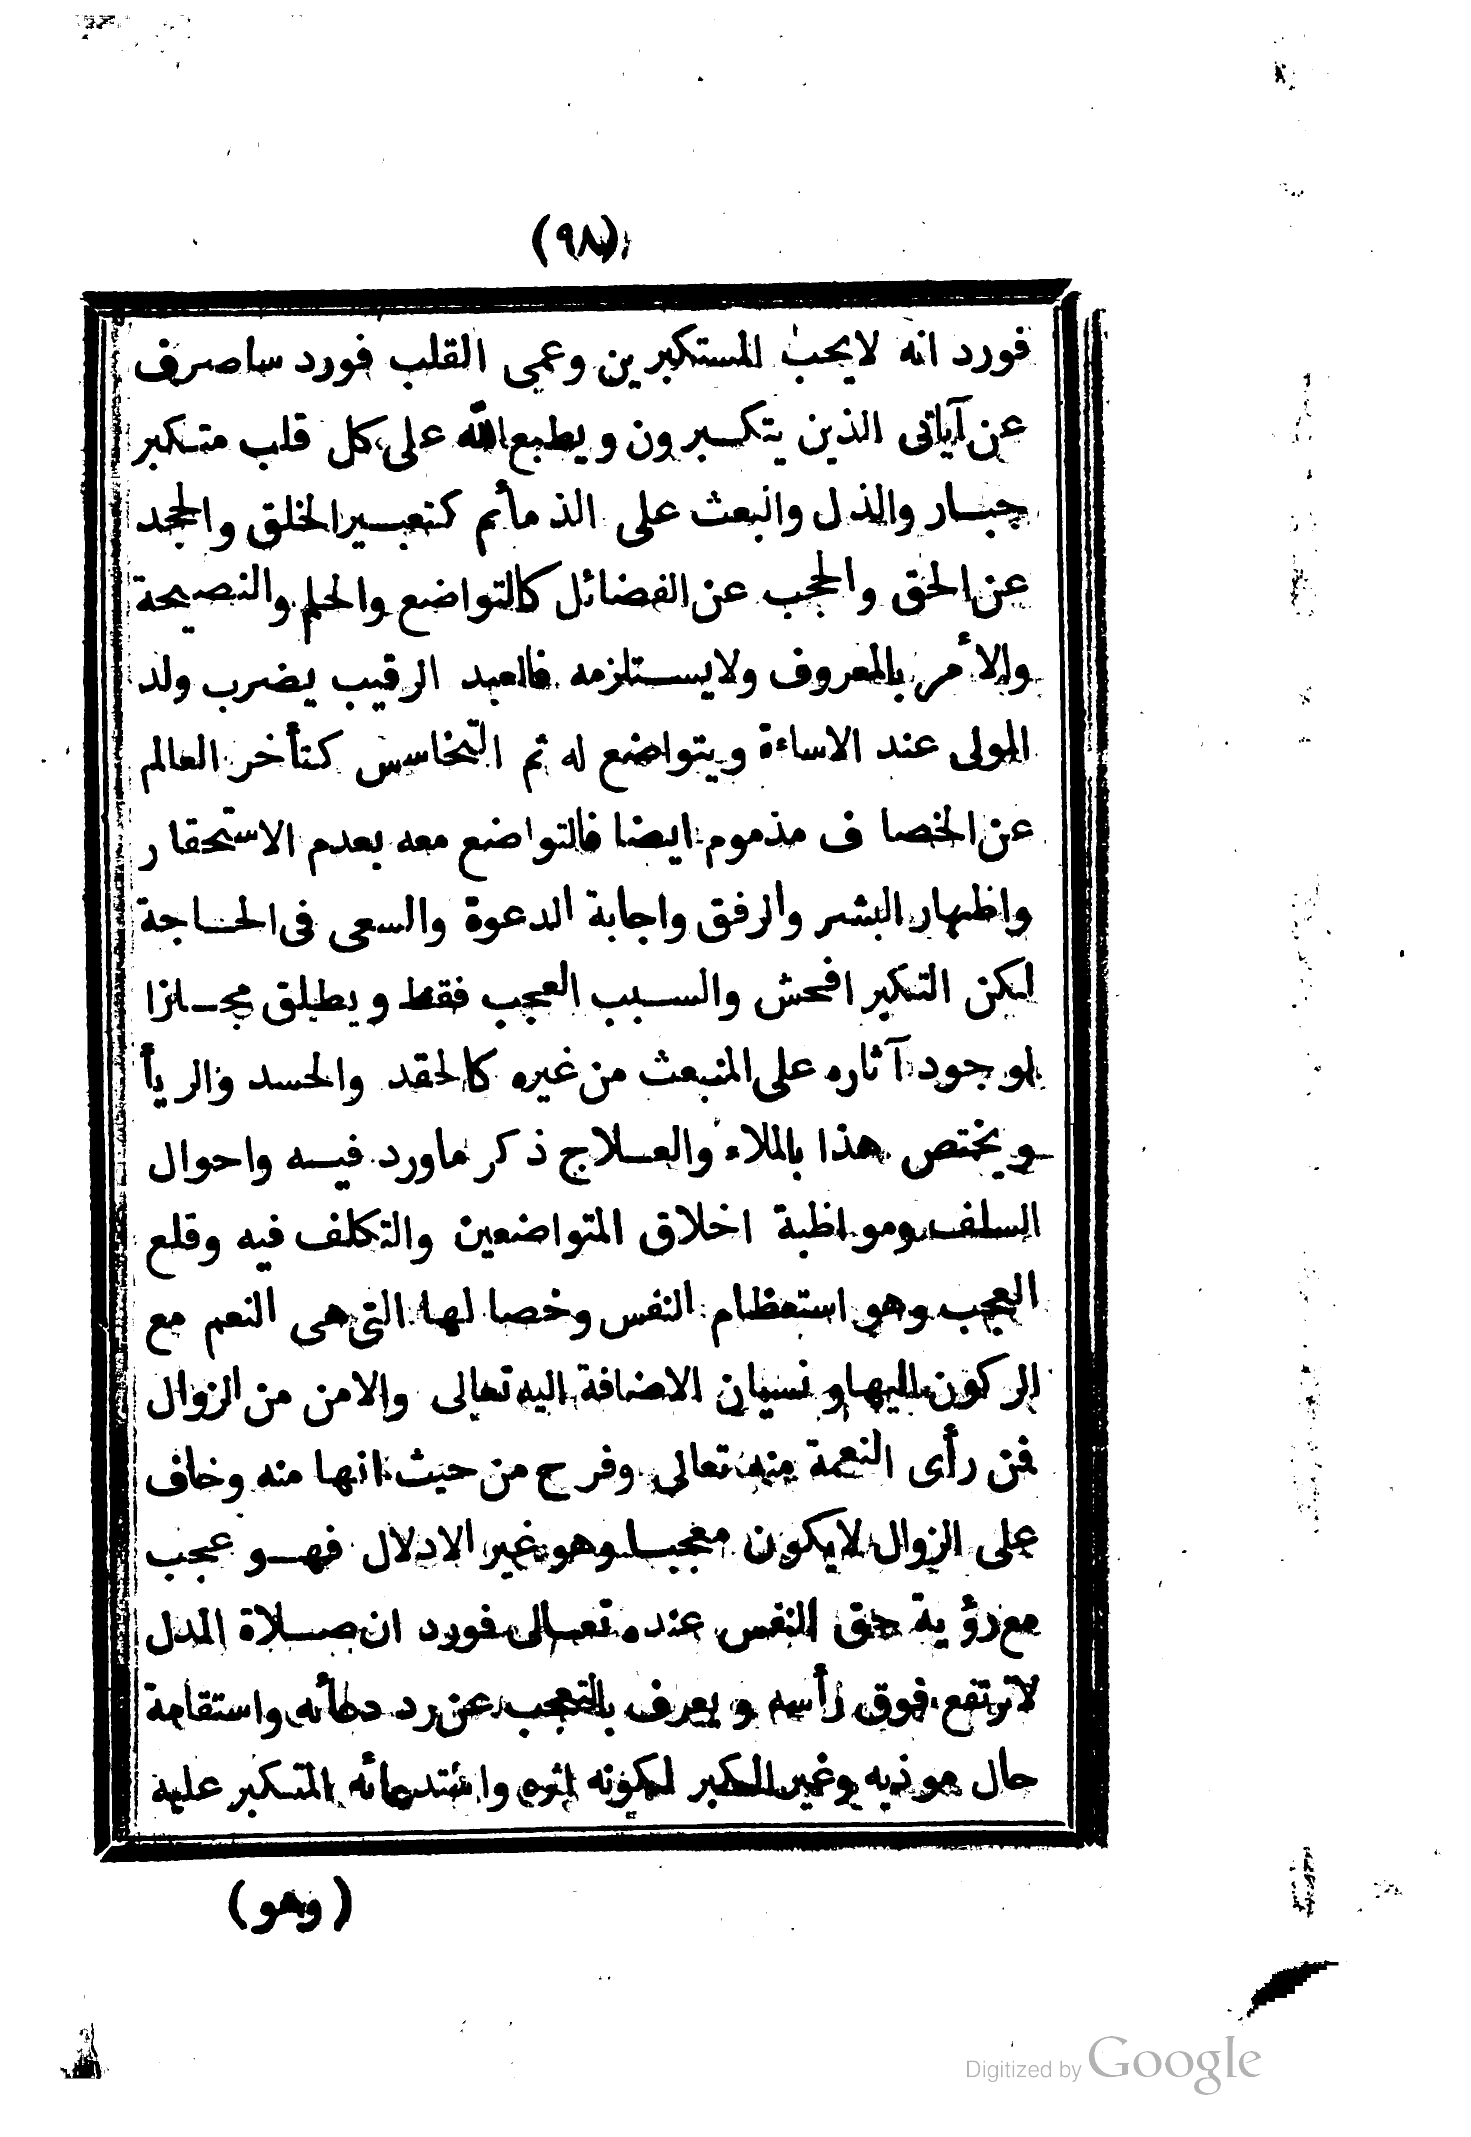 (٩٨)
فورد انه لايحب المستكبرين وعمى القلب فورد ساصرف
عن آياتى الذين يتكبرون ويطبع الله على كل قلب متكبر
جبار والذل وانبعث على الذمائم كتعيير الخلق والجحد
عن الحق والحجب عن الفضائل كالتواضع والحلم والنصيحة
والأمر بالمعروف ولايستلزمه فالعبد الرقيب يضرب ولد
المولى عند الاساءة ويتواضع له ثم التخاسس كتأخر العالم
عن الخصاف مذموم ايضا فالتواضع معه بعدم الاستحقار
واظهار البشر والرفق واجابة الدعوة والسعى فى الحاجة
لكن التكبر افحش والسبب العجب فقط ويطلق مجازا
لوجود آثاره على المنبعث من غيره كالحقد والحسد والريأ
ويختص هذا بالملاء والعلاج ذكر ماورد فيه واحوال
السلف ومواظبة اخلاق المتواضعين والتكلف فيه وقلع
العجب وهو استعظام النفس وخصالها التى هى النعم مع
الركون اليها ونسيان الاضافة اليه تعالى والامن من الزوال
فمن رأى النعمة منه تعالى وفرح من حيث انها منه وخاف
على الزوال لايكون معجبا وهو غير الادلال فهو عجب
مع رؤية حق النفس عنده تعالى فورد ان صلاة المدل
لاترتفع فوق رأسه ويعرف بالتعجب عن رد دعائه واستقامة
حال موذيه وغير الكبر لكونه اثره واستدعائه المتكبر عليه
(وهو)
Digitized by Google